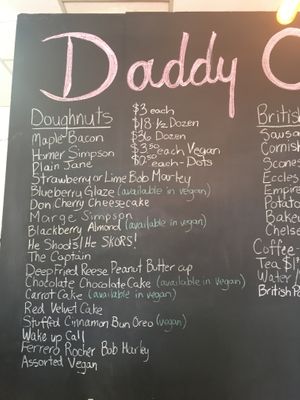 Daddy
Doughnuts
$3 each
$18 1/2 Dozen
$36 Dozen
$3.50 each Vegan
each-Dots
Maple Bacon
Homer Simpson
Plain Jane
Strawberry or Lime Bob Marley
Blueberry Glaze (available in vegan)
Don Cherry Cheesecake
Marge Simpson
Blackberry Almond (available in vegan)
He Shoots/He SKORS!
The Captain
Deepfried Reese Peanut Butter cup
Chocolate Chocolate Cake (available in vegan)
Carrot Cake (available in vegan)
Red Velvet Cake
Stuffed Cinnamon Bun Oreo (vegan)
Wake up Call
Ferrero Rocher Bob Marley
Assorted Vegan
British
Sausa
Cornish
Scones
Eccles
Empire
Potato
Bake
Chelse
Coffee
Tea $1
Water
British P